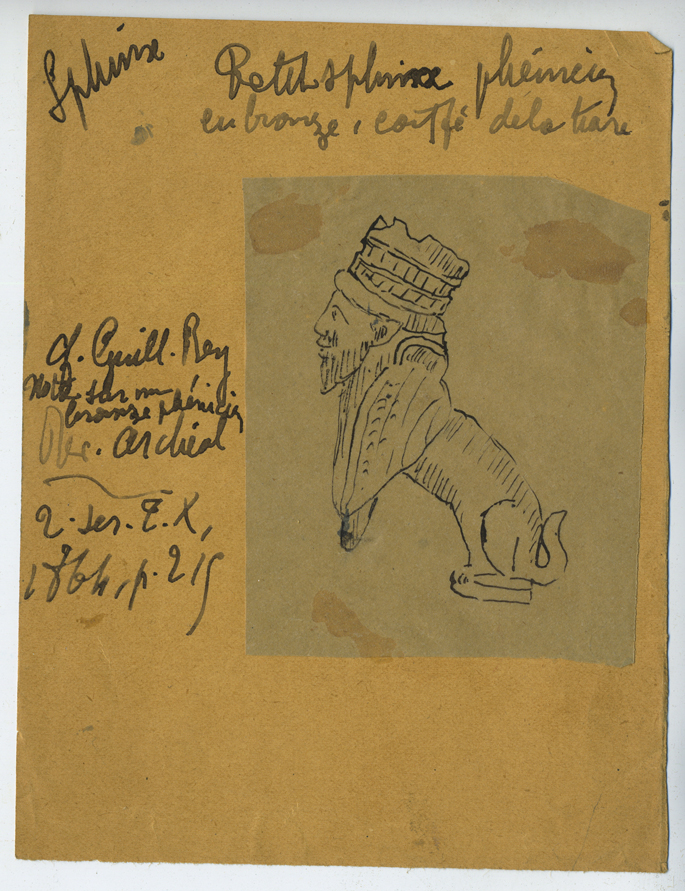 Sphinx
Petit sphinx phénicien
en bronze, coiffé de la tiare
cf. Guill. Rey
Note sur un
bronze phénicien
Rev. Archéol
2. ser. T. X,
1864, p. 215